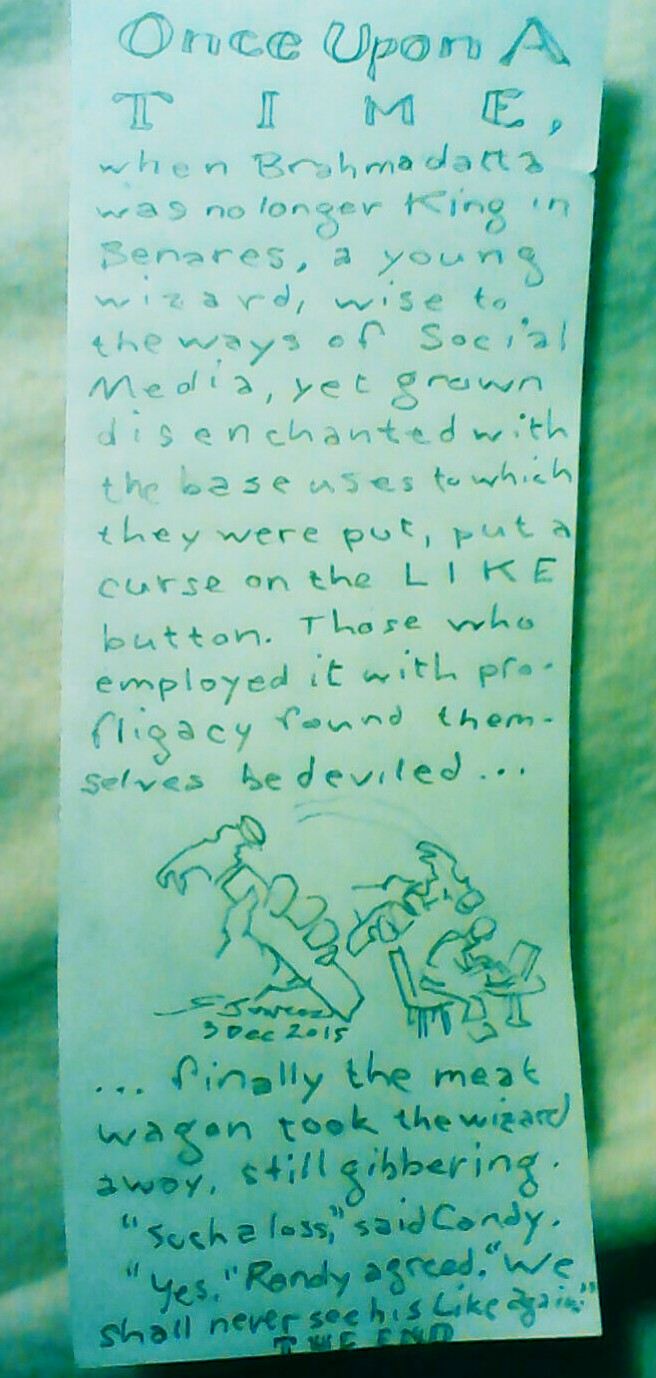 Once Upon A
TIME,
when Brahmadatta
was no longer King in
Benares, a young
wizard, wise to
the ways of Social
Media, yet grown
disenchanted with
the base uses to which
they were put, put a
curse on the LIKE
button. Those who
employed it with pro-
fligacy found them-
selves bedeviled...
3 Dec 2015
... finally the meat
wagon took the wizard
away, still gibbering.
"Such a loss," said Candy.
"Yes," Randy agreed. "We
shall never see his Like again."
THE END